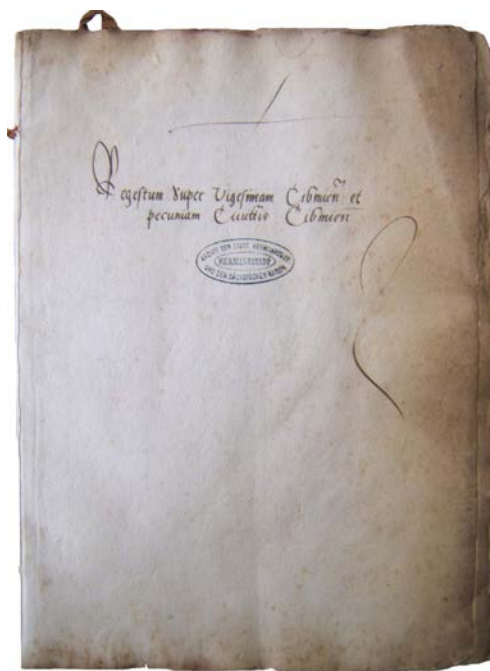 Regestum Super Vigesimam Cibinien et
pecuniam Civitatis Cibinien
ARCHIV DER STADT HERMANNSTADT
HERMANNSTADT
UND DER SÄCHSISCHEN NATION